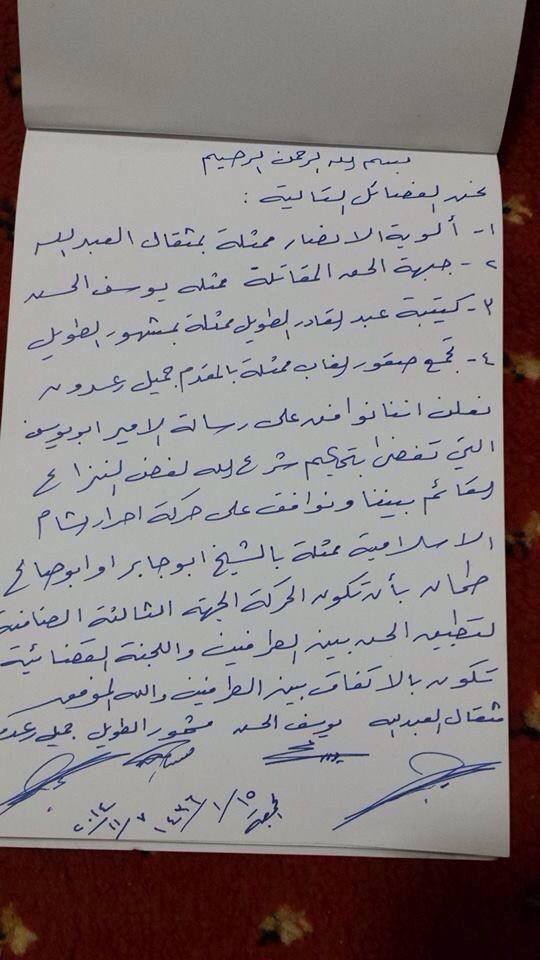 بسم الله الرحمن الرحيم
نحن الفصائل التالية :
١- ألوية الانصار ممثلة بمثقال العبدالله
٢- جبهة الحق المقاتلة ممثله يوسف الحسن
٣- كتيبة عبدالقادر الطويل ممثلة بمشهور الطويل
٤- تجمع صقور الغاب ممثلة بالمقدم جميل رعدون
نعلن اننا نوافق على رسالة الامير ابويوسف
التي تفضي بتحكيم شرع الله لفض النزاع
القائم بيننا ونوافق على حركة احرار الشام
الاسلامية ممثلة بالشيخ ابوجابر او ابوصالح
طحان بأن تكون الحركة الجهة الثالثة الضامنة
لتطبيق الحق بين الطرفين واللجنة القضائية
تكون بالاتفاق بين الطرفين والله الموفق
مثقال العبدالله يوسف الحسن مشهور الطويل جميل رعدون
الجمعة ١٥/١/١٤٣٦
٧/١١/٢٠١٤